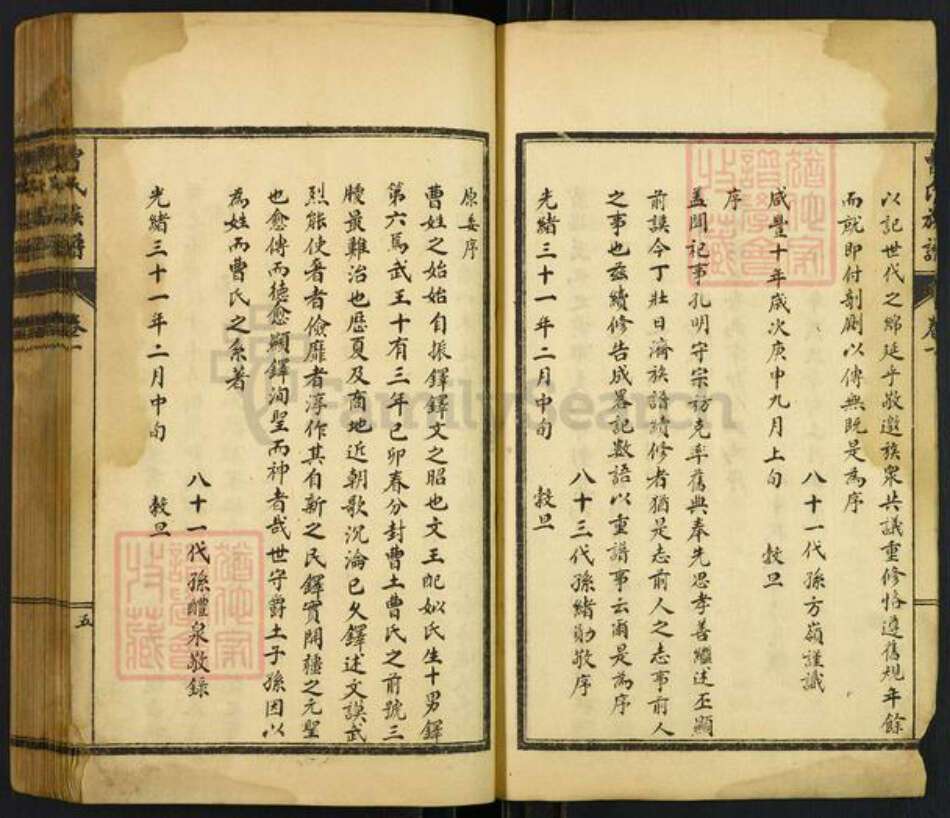 以記世代之綿延乎敬邀族衆共議重修恪遵舊規年餘
而就即付剞劂以傳無既是為序
八十一代孫方嶺謹識
咸豐十年歲次庚申九月上旬 穀旦
序
蓋聞記事孔明守宗訪克率舊典奉先思孝善繼述丕顯
前謨今丁壯日濟族譜續修者猶是志前人之志事前人
之事也茲續修告成畧記數語以重譜事云爾是為序
八十三代孫緒勛敬序
光緒三十一年二月中旬 穀旦
原委序
曹姓之始始自振鐸鐸文之昭也文王配姒氏生十男鐸
第六焉武王十有三年己卯春分封曹土曹氏之前號三
騣最難治也歷夏及商地近朝歌沉淪已久鐸述文謨武
烈能使奢者儉靡者淳作其自新之民鐸實開穗之元聖
也愈傳而德愈顯鐸洵聖而神者哉世守爵土子孫因以
為姓而曹氏之系著
八十一代孫醴泉敬錄
光緒三十一年二月中旬 穀旦
曹氏族譜
卷一
五
FamilySearch